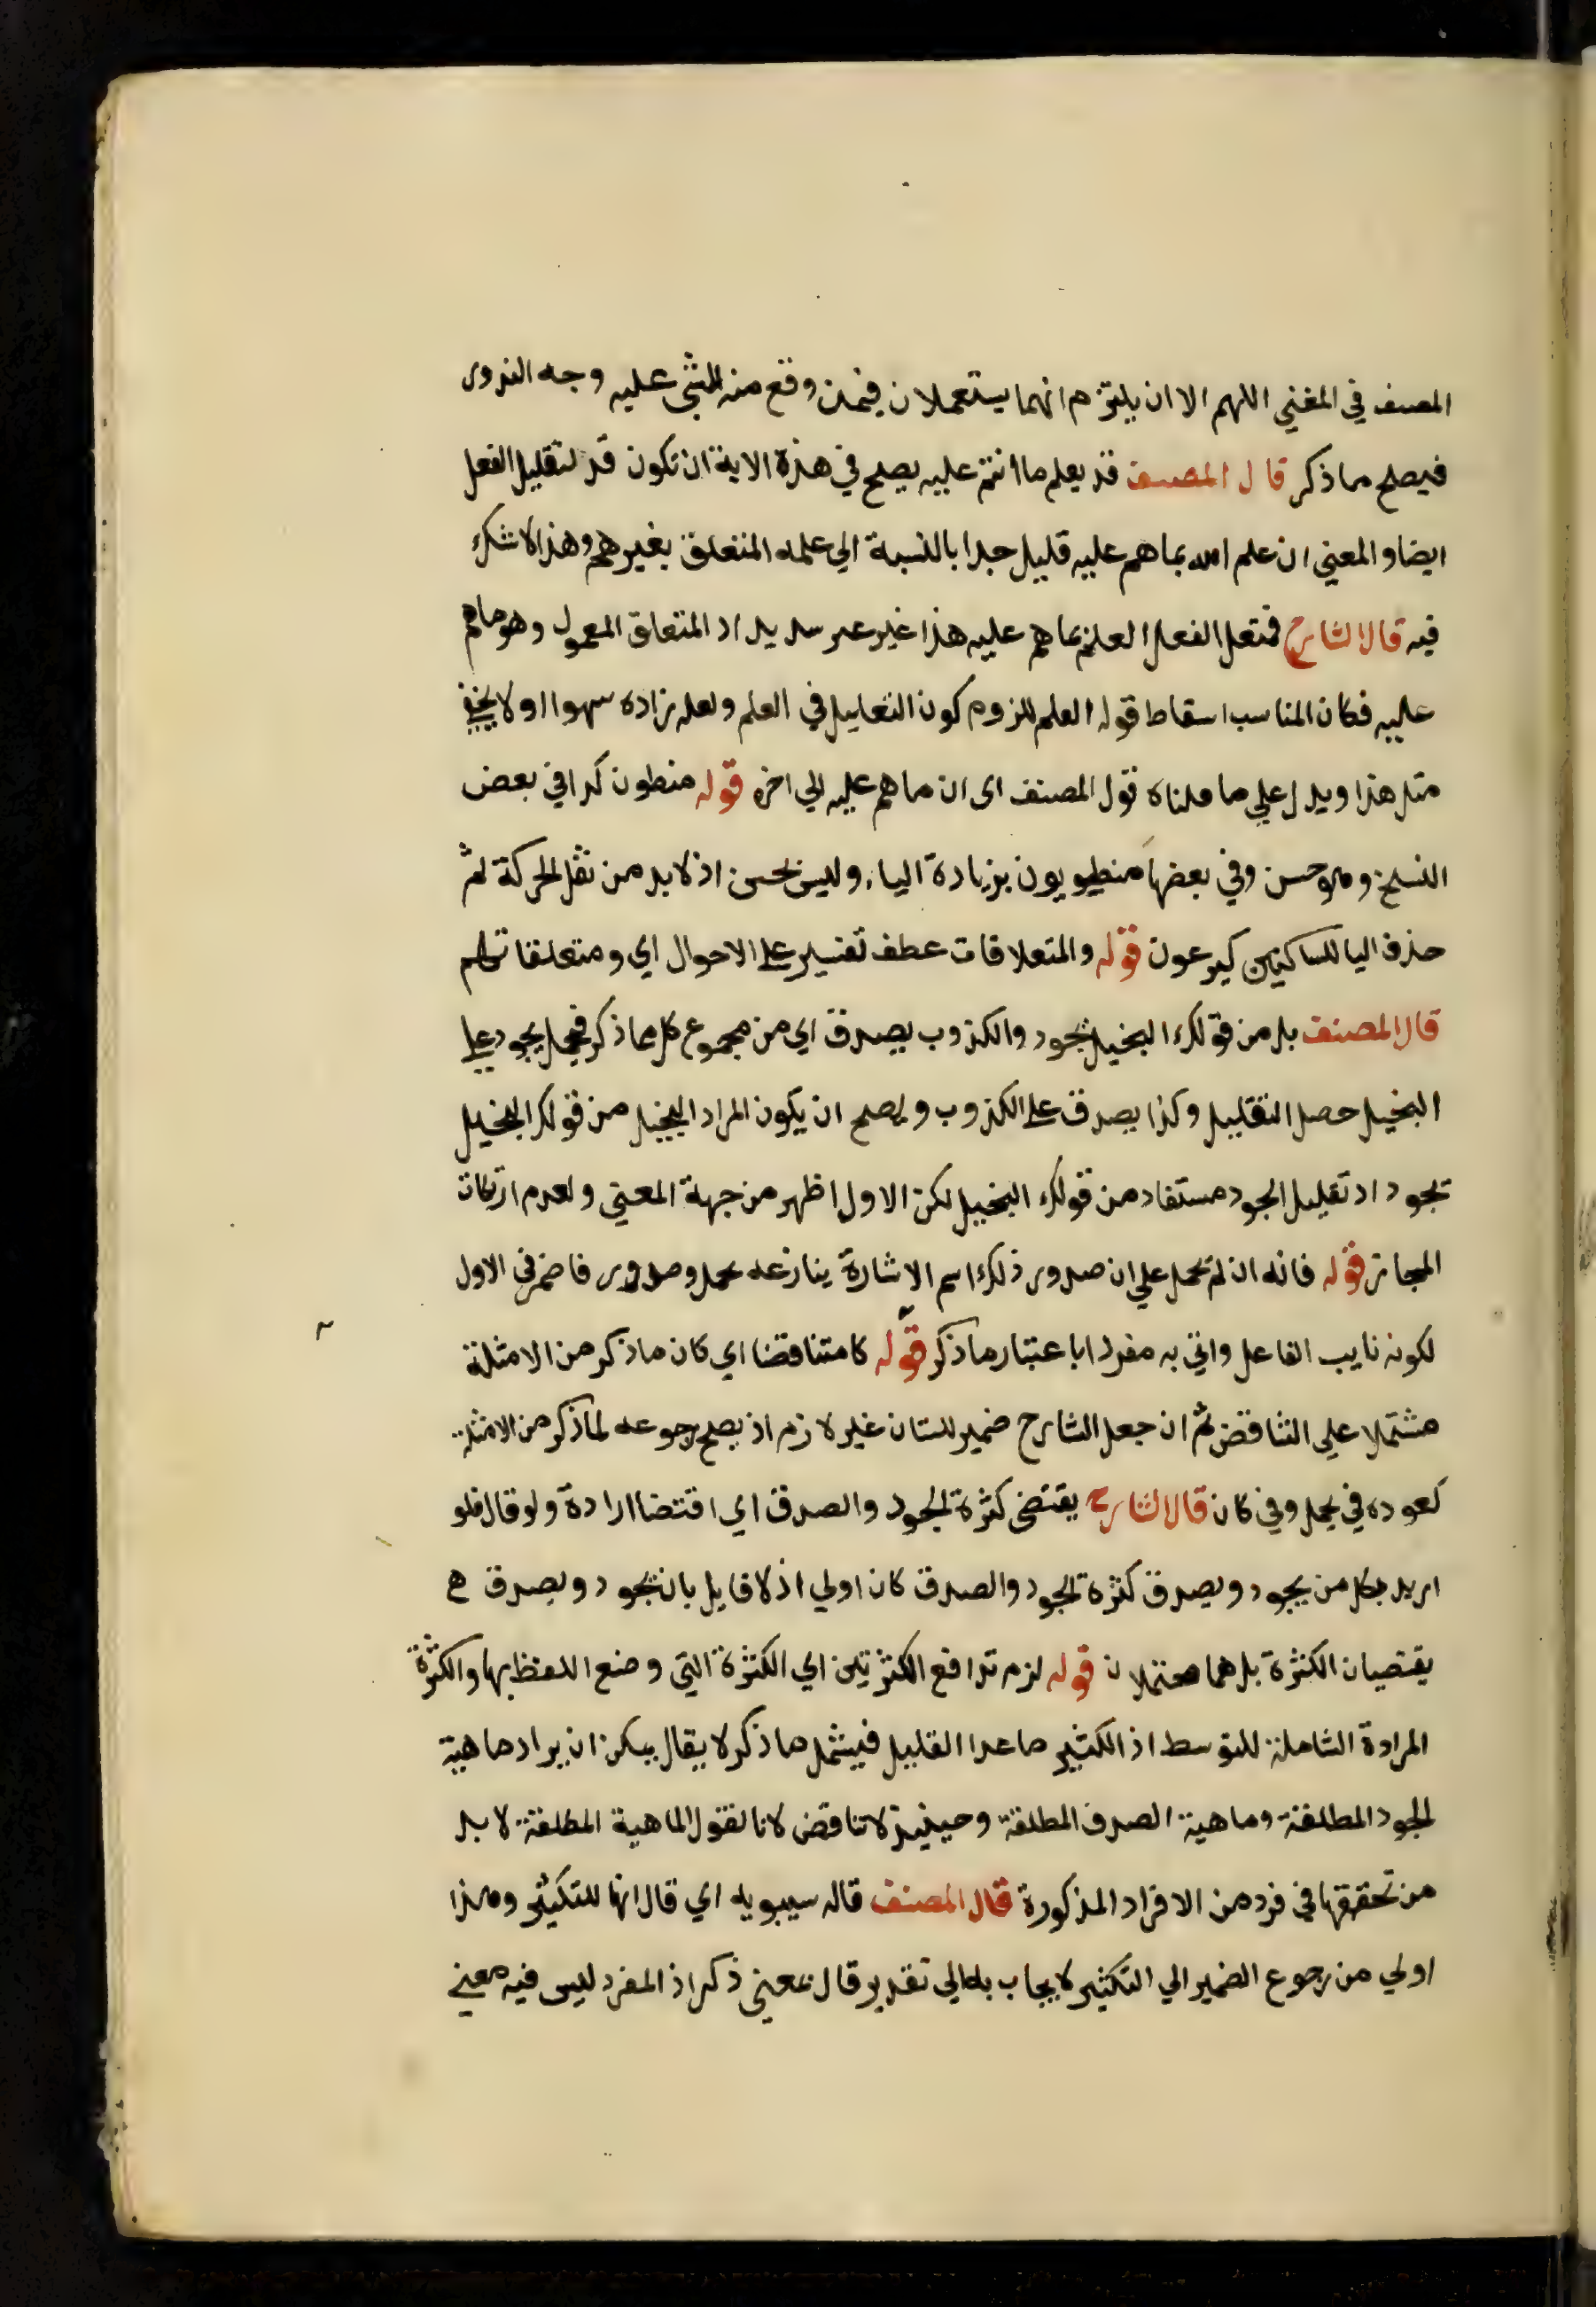 المصنف في المغني اللهم الا ان يلتزم انهما يستعملان فيمن وقع منه المشي عليه وجه الندور
فيصلح ما ذكر قال المصنف قد يعلم ما انتم عليه يصلح في هذه الاية ان تكون قد لتقليل الفعل
ايضا والمعني ان علم الله بما هم عليه قليل جدا بالنسبة الي علمه المتعلق بغيرهم وهذا لا شك
فيه قال الشارح فتعل الفعل العلم بما هم عليه هذا غير سديد اذ المتعلق المعمول وهو ما هم
عليه فكان المناسب اسقاط قوله العلم للزوم كون التعليل في العلم ولعله زاده سهوا او لا يخفي
مثل هذا ويدل علي ما قلناه قول المصنف اى ان ما هم عليه الي اخره قوله منطون كذا في بعض
النسخ وهو حسن وفي بعضها منطويون بزيادة الياء وليس بحسن اذ لا بد من نقل الحركة ثم
حذف اليا للساكنين كيرعون قوله والمتعلاقات عطف تفسير علي الاحوال اي ومتعلقاتهم
قال المصنف بل من قولك البخيل يجود والكذوب يصدق اي من مجموع كل مما ذكر فبحمل يجود علي
البخيل حصل التقليل وكذا يصدق علي الكذوب ويصلح ان يكون المراد البخيل من قولك البخيل
يجود اذ تقليل الجود مستفاد من قولك البخيل لكن الاول اظهر من جهة المعني ولعدم ارتكاب
المجاز قوله فانه ان لم يحمل علي ان صدور ذلك اسم الاشارة ينازعه يحمل وصدور فاضمر في الاول
لكونه نايب الفاعل واتي به مفردا باعتبار ما ذكر قوله كا متناقضا اي كان ما ذكر من الامثلة
مشتملا علي التناقض ثم ان جعل الشارح ضمير للشان غير لازم اذ يصلح رجوعه لما ذكر من الامثلة
كعوده في يحمل وفي كان قال الشارح يقتضي كثرة الجود والصدق اي اقتضا ارادة ولو قال فلو
اريد بكل من يجود ويصدق كثرة الجود والصدق كان اولي اذ لا قايل بان يجود ويصدق
يقتضيان الكثرة بل هما محتملان قوله لزم تدافع الكثرتين اي الكثرة التي وضع اللفظ بها والكثرة
المرادة الشاملة للتوسط اذ الكثير ما عدا القليل فيشمل ما ذكر لا يقال يمكن ان يراد ماهية
الجود المطلقة وماهية الصدق المطلقة وحينيذ لا تناقض لانا نقول الماهية المطلقة لا بد
من تحققها في فرد من الافراد المذكورة قال المصنف قاله سيبويه اي قال انها للتكثير وهذا
اولي من رجوع الضمير الي التكثير لايجاب به الي تقدير قال بمعني ذكر اذ المفرد ليس فيه معني